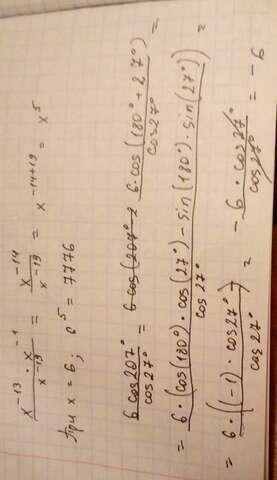 x⁻¹³ · x⁻¹ / x⁻¹⁹ = x⁻¹⁴ / x⁻¹⁹ = x⁻¹⁴⁺¹⁹ = x⁵
При x = 6; 6⁵ = 7776
6 cos 207° / cos 27° = 6·cos(180° + 27°) / cos 27° =
= 6 · (cos(180°) · cos(27°) − sin(180°) · sin(27°)) / cos 27° =
= 6 · ((-1) · cos 27°) / cos 27° = − 6 · cos 27° / cos 27° = − 6